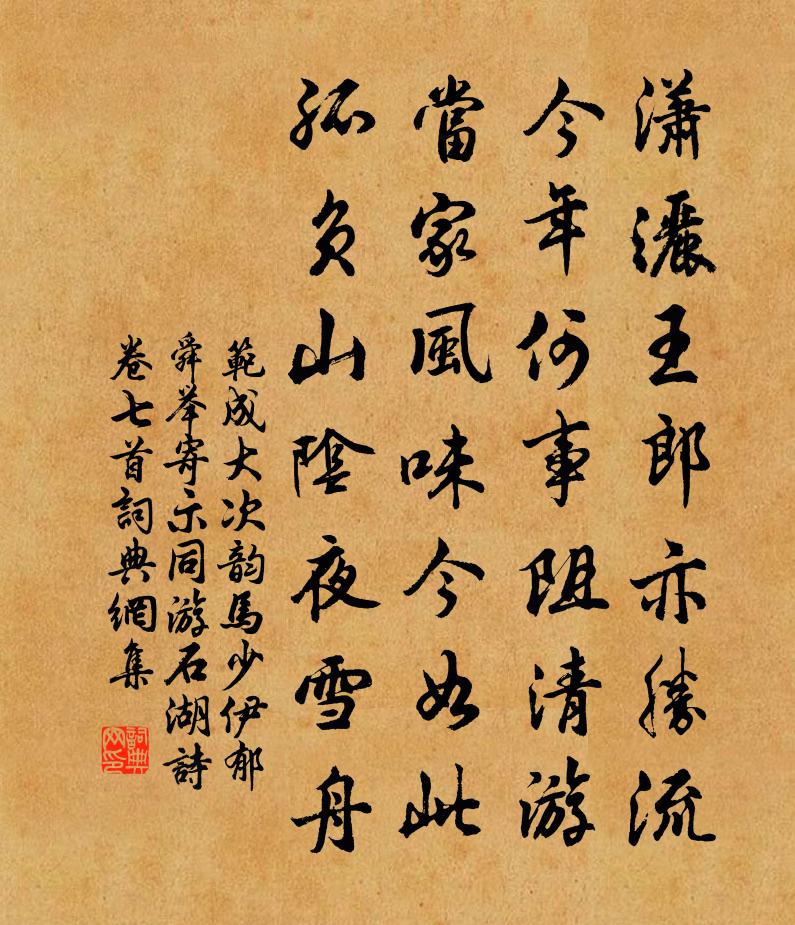 瀟灑王郎亦勝流
今年何事阻清游
當家風味今如此
孤負山陰夜雪舟
範成大次韵馬少伊郁
舜举寄示同游石湖詩
卷七首詞典網集
詞典网印